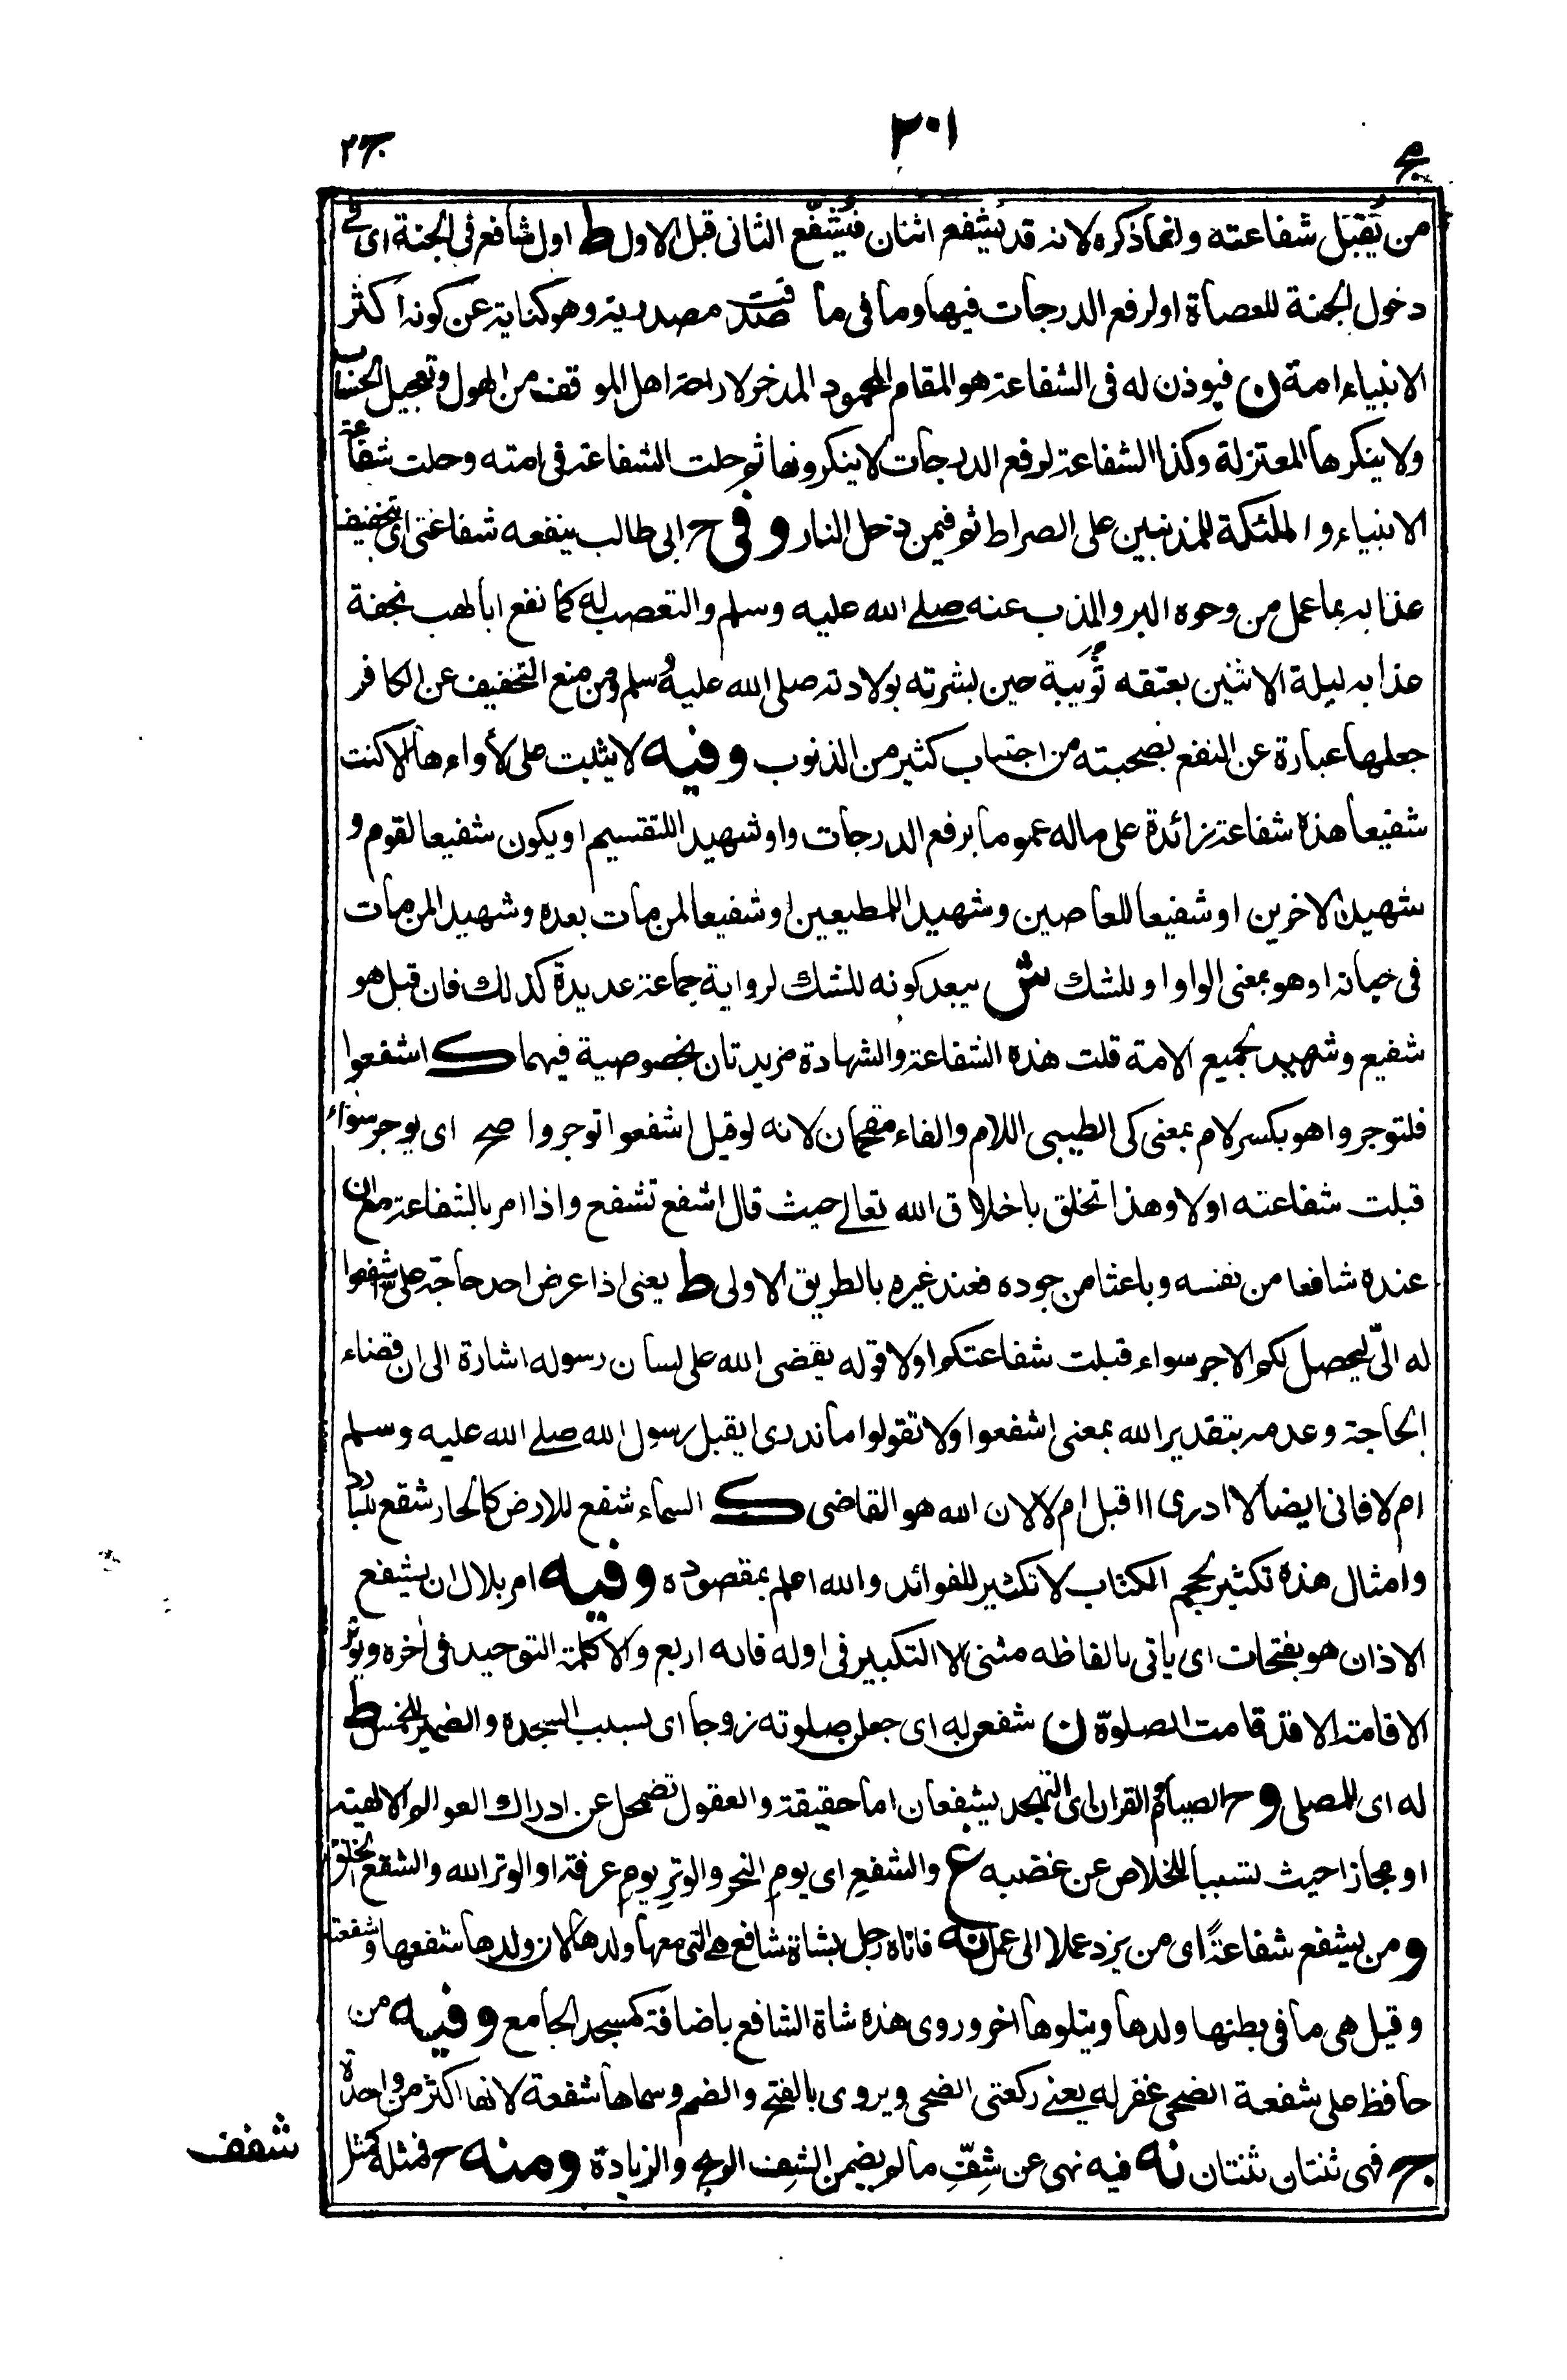 مج
٢٠١
ج٢
من تُقبَل شفاعته وانما ذكره لانه قد يشفع اثنان فيُشفّع الثانى قبل الاول ط اول شافع فى الجنة اى فى
دخول الجنة للعصاة او لرفع الدرجات فيها وما فى ما صدقت مصدرية وهو كناية عن كونه اكثر
الانبياء امة ن فيوذن له فى الشفاعة هو المقام المحمود المدخر لاراحة اهل الموقف من الهول وتعجيل الحساب
ولا ينكرها المعتزلة وكذا الشفاعة لرفع الدرجات لا ينكرونها ثم حلت الشفاعة فى امته وحلت شفاعة
الانبياء والملئكة للمذنبين على الصراط ثم فيمن دخل النار وفى ح ابى طالب ينفعه شفاعتى اى بتخفيف
عذابه بما عمل من وجوه البر والذب عنه صلے الله عليه وسلم والتعصب له كما نفع ابا لهب بخفة
عذابه ليلة الاثنين بعتقه ثُوَيبة حين بشرته بولادته صلى الله عليه وسلم ومن منع التخفيف عن الكافر
جعلها عبارة عن النفع بصحبته من اجتناب كثير من الذنوب وفيه لا يثبت على لأواءها الا كنت
شفيعا هذه شفاعة زائدة على ماله عموما برفع الدرجات واو شهيدا للتقسيم او يكون شفيعا لقوم و
شهيدا لاخرين او شفيعا للعاصين وشهيدا للمطيعين او شفيعا لمن مات بعده وشهيدا لمن مات
فى حياته او هو بمعنى الواو او للشك ش يبعد كونه للشك لرواية جماعة عديدة كذلك فان قيل هو
شفيع وشهيد لجميع الامة قلت هذه الشفاعة والشهادة مزيدتان بخصوصية فيهما ك اشفعوا
فلتوجروا هو بكسر لام بمعنى كى الطيبى اللام والفاء مقحمان لانه لو قيل اشفعوا توجروا صح اى يوجر سواء
قبلت شفاعته او لا وهذا تخلق باخلاق الله تعالے حيث قال اشفع تشفع واذا امر بالشفاعة مع ان
عنده شافعا من نفسه وباعثا من جوده فعند غيره بالطريق الاولى ط يعنى اذا عرض احد حاجة على اشفعوا
له الىّ ليحصل لكم الاجر سواء قبلت شفاعتكم او لا قوله يقضى الله على لسان رسوله اشارة الى ان قضاء
الحاجة وعدمه بتقدير الله بمعنى اشفعوا ولا تقولوا ما ندرى ايقبل رسول الله صلے الله عليه وسلم
ام لا فانى ايضا لا ادرى ااقبل ام لا لان الله هو القاضى ك السماء شفع للارض كالحار شفع للبارد
وامثال هذه تكثير لحجم الكتاب لا تكثير للفوائد والله اعلم بمقصوده وفيه امر بلال ان يشفع
الاذان هو بفتحات اى ياتى بالفاظه مثنى الا التكبير فى اوله فانه اربع والا كلمة التوحيد فى اخره ويوتر
الاقامة الا قد قامت الصلوة ن شفعن له اى جعلن صلوته زوجا اى بسبب السجدة والضمير للخمس ط
له اى للمصلى وح الصيام والقران اى التهجد يشفعان اما حقيقة والعقول تضمحل عن ادراك العوالم الالهية
او مجازا حيث تسببا للخلاص عن غضبه غ والشفعِ اى يومِ النحر والوترِ يومِ عرفة او الوتر الله والشفع الخلق
و من يشفع شفاعةً اى من يزد عملا الى عمل نه فاتاه رجل بشاة شافع هى التى معها ولدها لان ولدها شفعها وشفعته
وقيل هى ما فى بطنها ولدها ويتلوها اخر وروى هذه شاة الشافع باضافة كمسجد الجامع وفيه من
حافظ على شفعة الضحى غفر له يعنے ركعتى الضحى ويروى بالفتح والضم وسماها شفعة لانها اكثر من واحدة
ج فهى ثنتان ثنتان نه فيه نهى عن شِفِّ ما لم يضمن الشِف الربح والزيادة ومنه ح فمثله كمثل
شفف